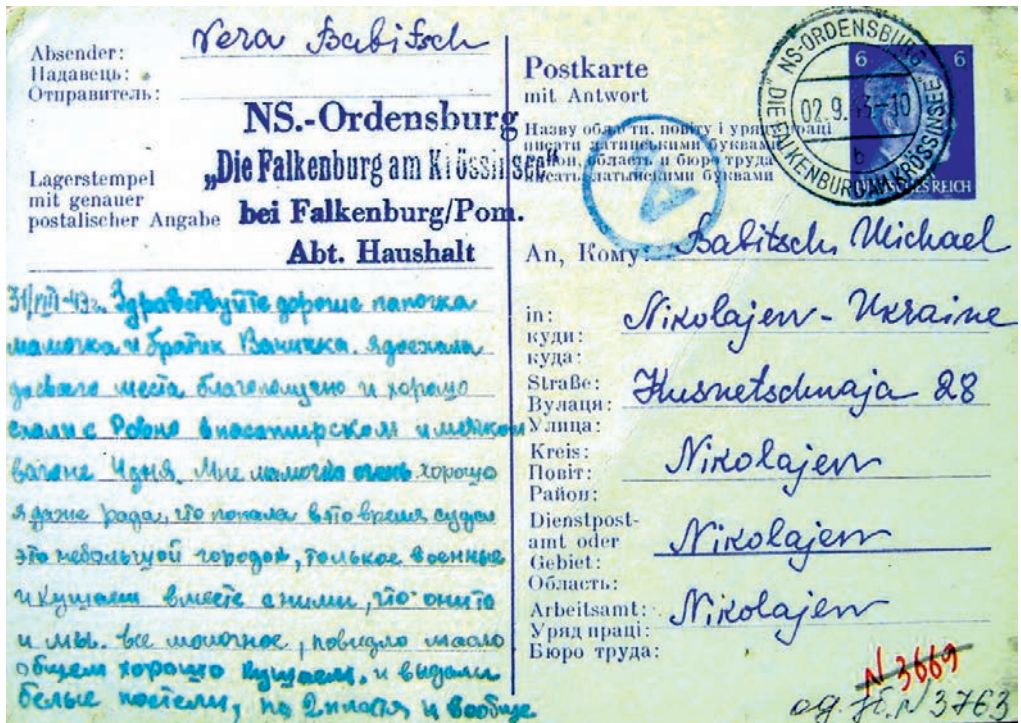 Absender: Vera Babitsch
Надавець:
Отправитель:
NS.-Ordensburg
„Die Falkenburg am Krössinsee“
bei Falkenburg/Pom.
Abt. Haushalt
Lagerstempel
mit genauer
postalischer Angabe
31/VIII-43г. Здравствуйте дорогие папочка
мамочка и братик Ваничка. я доехала
до своего места благополучно и хорошо
ехали с Ровно в пасажирском и мягком
вагоне 4 дня. Мне мамочка очень хорошо
я даже рада, что попала в это время сюда
это небольшой городок, только военные
и кушаем вместе с ними, что они то
и мы. все молочное, повидло масло
общем хорошо кушаем. и выдали
белые постели, по 2 платя и вообще
Postkarte
mit Antwort
Назву области, повіту і уряду праці
писати латинськими буквами
Район, область и бюро труда
писать латынскими буквами
A
NS-ORDENSBURG
02.9.43-10
b
„DIE FALKENBURG AM KRÖSSINSEE“
6 6
DEUTSCHES REICH
An, Кому: Babitsch Michael
in: Nikolajew - Ukraine
куди:
куда:
Straße: Kusnetschnaja 28
Вулаця:
Улица:
Kreis: Nikolajew
Повіт:
Район:
Dienstpost-
amt oder Nikolajew
Gebiet:
Область:
Arbeitsamt: Nikolajew
Уряд праці:
Бюро труда:
N 3669
од. зб. N 3763